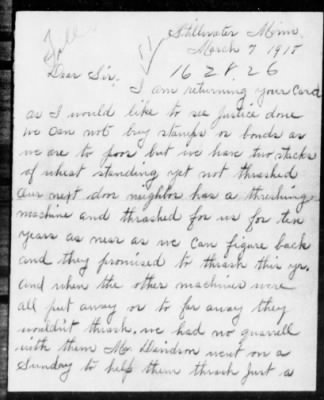 Stillwater Minn.
March 7 1918
Dear Sir. 16 28. 26
I am returning your card
as I would like to see justice done
we can not buy stamps or bonds as
we are to poor but we have two stacks
of wheat standing yet not thrashed
our next door neighbor has a threshing
machine and thrashed for us for ten
years as near as we can figure back
and they promised to thrash this yr.
and when the other machines were
all put away or to far away they
wouldn't thrash. we had no quarrell
with them Mr. Davidson went on a
Sunday to help them thrash just a